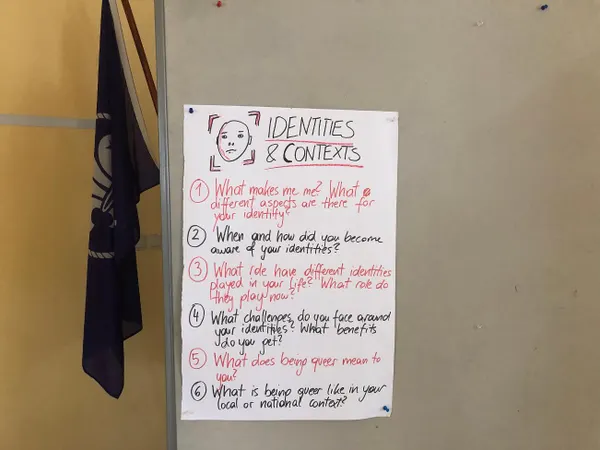 IDENTITIES
& CONTEXTS
1 What makes me me? What
different aspects are there for
your identity?
2 When and how did you become
aware of your identities?
3 What role have different identities
played in your life? What role do
they play now?
4 What challenges do you face around
your identities? What benefits
do you get?
5 What does being queer mean to
you?
6 What is being queer like in your
local or national context?